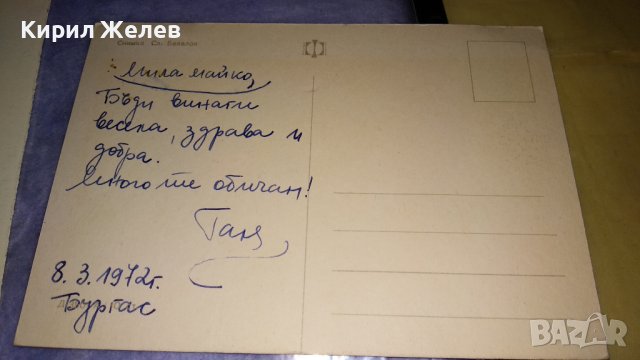 Кирил Желев
Снимка Сл.
Мила майко,
Бъди винаги
весела, здрава и
добра.
Много те обичам!
Таня
8.3.1972г.
Бургас
BAZAR
.bg